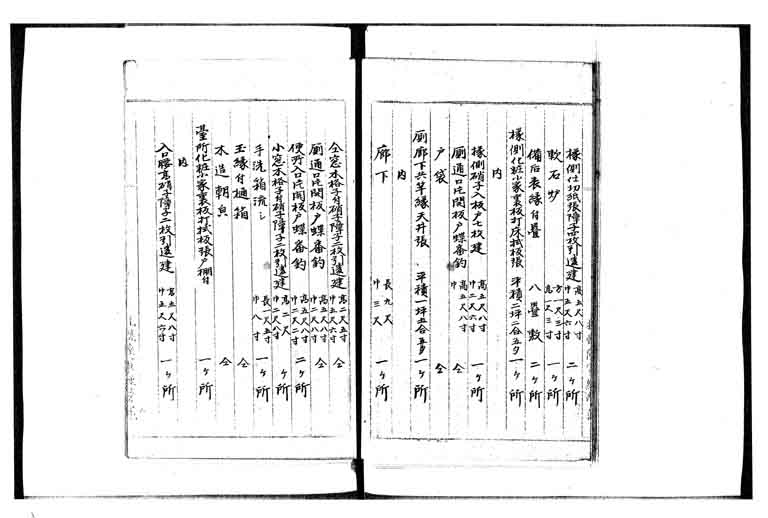 椽側仕切紙張障子四枚引違建 高五尺八寸 巾五尺六寸 二ヶ所
敷石 方一尺三寸 高一尺三寸 一ヶ所
備后表縁付疊 八疊敷 二ヶ所
椽側化粧小家裏板打床拭板張 平積二坪二合五夕 一ヶ所
内
椽側硝子入板戸七枚建 高五尺八寸 巾二尺六寸 一ヶ所
厠通口片開板戸蝶番釣 高五尺八寸 巾二尺八寸 仝
戸袋 仝
厠廊下共竿縁天井張 平積一坪五合五夕 一ヶ所
内
廊下 長九尺 巾三尺 一ヶ所
仝窓木格子付硝子障子二枚引違建 高二尺五寸 巾五尺六寸 仝
厠通口片開板戸蝶番釣 高五尺八寸 巾二尺八寸 仝
便所入口片開板戸蝶番釣 高五尺八寸 巾二尺二寸 二ヶ所
小窓木格子付硝子障子二枚引違建 高二尺 巾二尺八寸 一ヶ所
手洗箱流シ 長一尺五寸 巾八寸 一ヶ所
玉縁付樋箱 仝
木造朝貝 仝
臺所化粧小家裏板打拭板張戸棚付 一ヶ所
内
入口腰高硝子障子二枚引違建 高五尺八寸 巾五尺六寸 一ヶ所